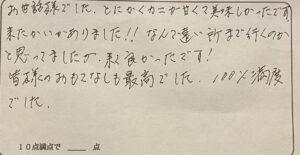 お世話様でした。とにかくカニが甘くて美味しかったです
来たかいがありました!! なんで遠い所まで行くのか
と思ってましたが、来て良かったです!
皆様のおもてなしも最高でした。100%満度
でした。
10点満点で ___ 点